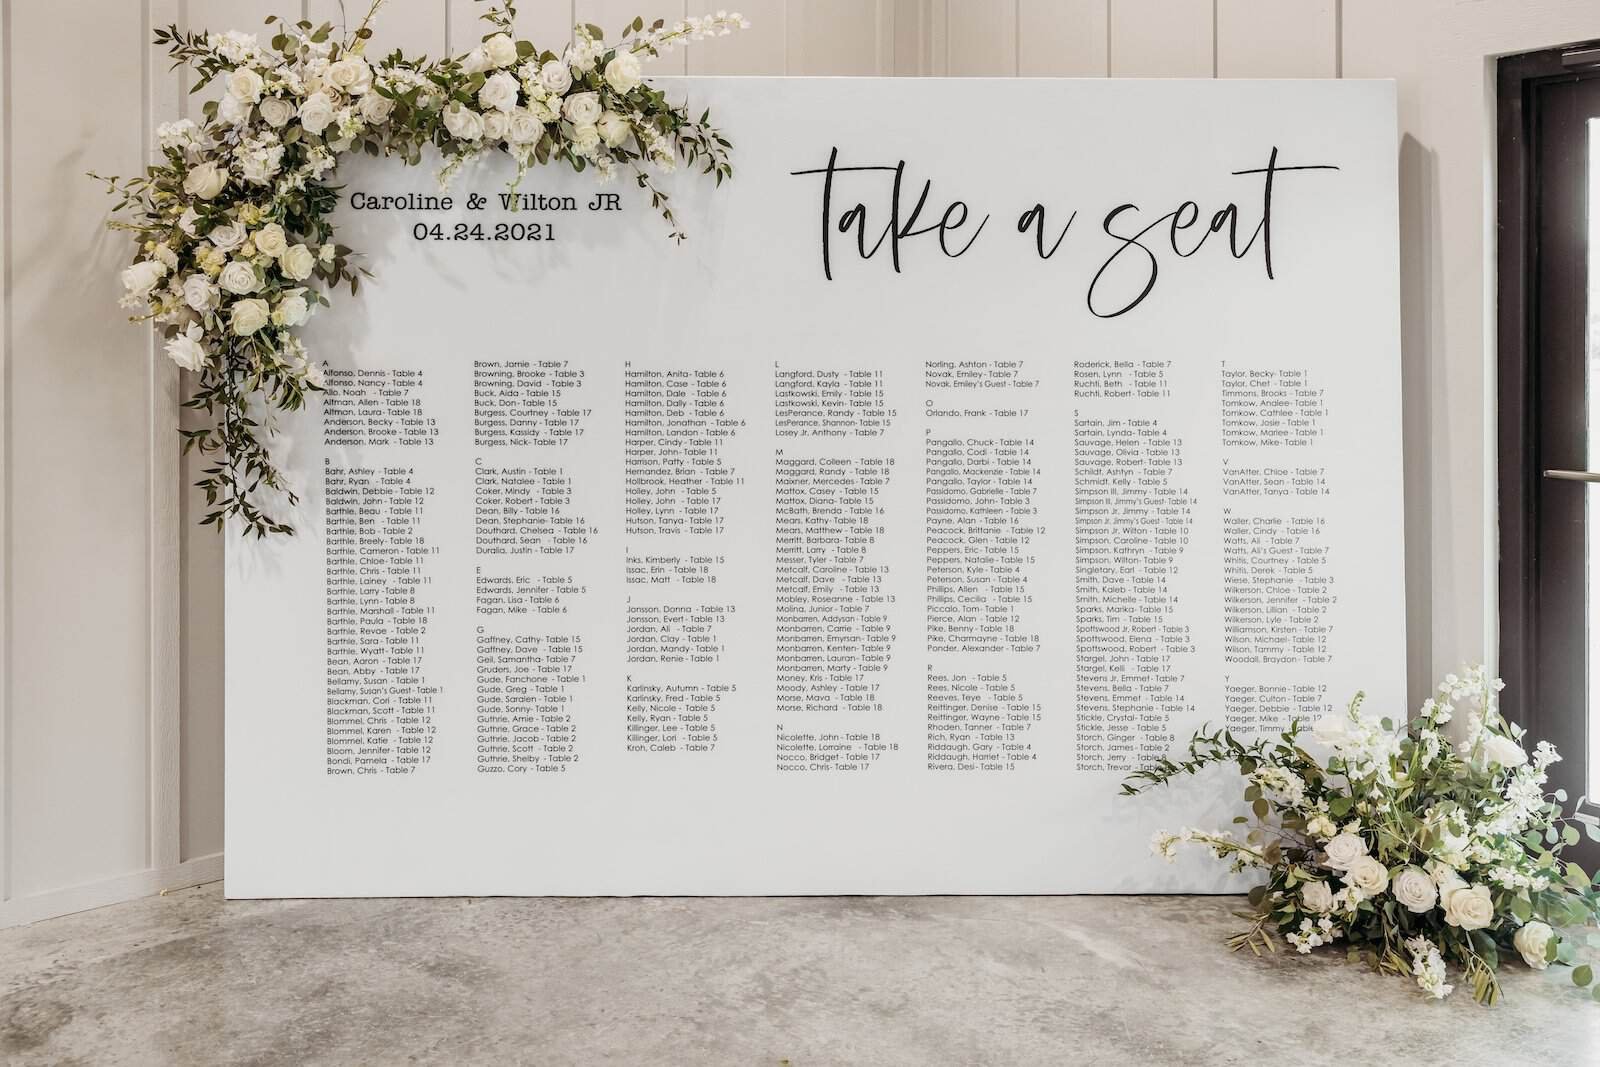 Caroline & Wilton JR
04.24.2021
take a seat
A
Alfonso, Dennis - Table 4
Alfonso, Nancy - Table 4
Allo, Noah - Table 7
Altman, Allen - Table 18
Altman, Laura - Table 18
Anderson, Becky - Table 13
Anderson, Brooke - Table 13
Anderson, Mark - Table 13
B
Bahr, Ashley - Table 4
Bahr, Ryan - Table 4
Baldwin, Debbie - Table 12
Baldwin, John - Table 12
Barthle, Beau - Table 11
Barthle, Ben - Table 11
Barthle, Bob - Table 2
Barthle, Breely - Table 18
Barthle, Cameron - Table 11
Barthle, Chloe - Table 11
Barthle, Chris - Table 11
Barthle, Lainey - Table 11
Barthle, Larry - Table 8
Barthle, Lynn - Table 8
Barthle, Marshall - Table 11
Barthle, Paula - Table 18
Barthle, Revae - Table 2
Barthle, Sara - Table 11
Barthle, Wyatt - Table 11
Bean, Aaron - Table 17
Bean, Abby - Table 17
Bellamy, Susan - Table 1
Bellamy, Susan's Guest - Table 1
Blackman, Cori - Table 11
Blackman, Scott - Table 11
Blommel, Chris - Table 12
Blommel, Karen - Table 12
Blommel, Katie - Table 12
Bloom, Jennifer - Table 12
Bondi, Pamela - Table 17
Brown, Chris - Table 7
Brown, Jamie - Table 7
Browning, Brooke - Table 3
Browning, David - Table 3
Buck, Aida - Table 15
Buck, Don - Table 15
Burgess, Courtney - Table 17
Burgess, Danny - Table 17
Burgess, Kassidy - Table 17
Burgess, Nick - Table 17
C
Clark, Austin - Table 1
Clark, Natalee - Table 1
Coker, Mindy - Table 3
Coker, Robert - Table 3
Dean, Billy - Table 16
Dean, Stephanie - Table 16
Douthard, Chelsea - Table 16
Douthard, Sean - Table 16
Duralia, Justin - Table 17
E
Edwards, Eric - Table 5
Edwards, Jennifer - Table 5
Fagan, Lisa - Table 6
Fagan, Mike - Table 6
G
Gaffney, Cathy - Table 15
Gaffney, Dave - Table 15
Geil, Samantha - Table 7
Gruders, Joe - Table 17
Gude, Fanchone - Table 1
Gude, Greg - Table 1
Gude, Saralen - Table 1
Gude, Sonny - Table 1
Guthrie, Amie - Table 2
Guthrie, Grace - Table 2
Guthrie, Jacob - Table 2
Guthrie, Scott - Table 2
Guthrie, Shelby - Table 2
Guzzo, Cory - Table 5
H
Hamilton, Anita - Table 6
Hamilton, Case - Table 6
Hamilton, Dale - Table 6
Hamilton, Dally - Table 6
Hamilton, Deb - Table 6
Hamilton, Jonathan - Table 6
Hamilton, Landon - Table 6
Harper, Cindy - Table 11
Harper, John - Table 11
Harrison, Patty - Table 5
Hernandez, Brian - Table 7
Hollbrook, Heather - Table 11
Holley, John - Table 5
Holley, John - Table 17
Holley, Lynn - Table 17
Hutson, Tanya - Table 17
Hutson, Travis - Table 17
I
Inks, Kimberly - Table 15
Issac, Erin - Table 18
Issac, Matt - Table 18
J
Jonsson, Donna - Table 13
Jonsson, Evert - Table 13
Jordan, Ali - Table 7
Jordan, Clay - Table 1
Jordan, Mandy - Table 1
Jordan, Renie - Table 1
K
Karlinsky, Autumn - Table 5
Karlinsky, Fred - Table 5
Kelly, Nicole - Table 5
Kelly, Ryan - Table 5
Killinger, Lee - Table 5
Killinger, Lori - Table 5
Kroh, Caleb - Table 7
L
Langford, Dusty - Table 11
Langford, Kayla - Table 11
Lastkowski, Emily - Table 15
Lastkowski, Kevin - Table 15
LesPerance, Randy - Table 15
LesPerance, Shannon - Table 15
Losey Jr, Anthony - Table 7
M
Maggard, Colleen - Table 18
Maggard, Randy - Table 18
Maixner, Mercedes - Table 7
Mattox, Casey - Table 15
Mattox, Diana - Table 15
McBath, Brenda - Table 16
Mears, Kathy - Table 18
Mears, Matthew - Table 18
Merritt, Barbara - Table 8
Merritt, Larry - Table 8
Messer, Tyler - Table 7
Metcalf, Caroline - Table 13
Metcalf, Dave - Table 13
Metcalf, Emily - Table 13
Mobley, Roseanne - Table 13
Molina, Junior - Table 7
Monbarren, Addysan - Table 9
Monbarren, Carrie - Table 9
Monbarren, Emyrsan - Table 9
Monbarren, Kenten - Table 9
Monbarren, Lauran - Table 9
Monbarren, Marty - Table 9
Money, Kris - Table 17
Moody, Ashley - Table 17
Morse, Mava - Table 18
Morse, Richard - Table 18
N
Nicolette, John - Table 18
Nicolette, Lorraine - Table 18
Nocco, Bridget - Table 17
Nocco, Chris - Table 17
Norling, Ashton - Table 7
Novak, Emiley - Table 7
Novak, Emiley's Guest - Table 7
O
Orlando, Frank - Table 17
P
Pangallo, Chuck - Table 14
Pangallo, Codi - Table 14
Pangallo, Darbi - Table 14
Pangallo, Mackenzie - Table 14
Pangallo, Taylor - Table 14
Passidomo, Gabrielle - Table 7
Passidomo, John - Table 3
Passidomo, Kathleen - Table 3
Payne, Alan - Table 16
Peacock, Brittanie - Table 12
Peacock, Glen - Table 12
Peppers, Eric - Table 15
Peppers, Natalie - Table 15
Peterson, Kyle - Table 4
Peterson, Susan - Table 4
Phillips, Allen - Table 15
Phillips, Cecilia - Table 15
Piccalo, Tom - Table 1
Pierce, Alan - Table 12
Pike, Benny - Table 18
Pike, Charmayne - Table 18
Ponder, Alexander - Table 7
R
Rees, Jon - Table 5
Rees, Nicole - Table 5
Reeves, Teye - Table 5
Reittinger, Denise - Table 15
Reittinger, Wayne - Table 15
Rhoden, Tanner - Table 7
Rich, Ryan - Table 13
Riddaugh, Gary - Table 4
Riddaugh, Harriet - Table 4
Rivera, Desi - Table 15
Roderick, Bella - Table 7
Rosen, Lynn - Table 5
Ruchti, Beth - Table 11
Ruchti, Robert - Table 11
S
Sartain, Jim - Table 4
Sartain, Lynda - Table 4
Sauvage, Helen - Table 13
Sauvage, Olivia - Table 13
Sauvage, Robert - Table 13
Schildt, Ashtyn - Table 7
Schmidt, Kelly - Table 5
Simpson III, Jimmy - Table 14
Simpson III, Jimmy's Guest - Table 14
Simpson Jr, Jimmy - Table 14
Simpson Jr, Jimmy's Guest - Table 14
Simpson Jr, Wilton - Table 10
Simpson, Caroline - Table 10
Simpson, Kathryn - Table 9
Simpson, Wilton - Table 9
Singletary, Earl - Table 12
Smith, Dave - Table 14
Smith, Kaleb - Table 14
Smith, Michelle - Table 14
Sparks, Marika - Table 15
Sparks, Tim - Table 15
Spottswood Jr, Robert - Table 3
Spottswood, Elena - Table 3
Spottswood, Robert - Table 3
Stargel, John - Table 17
Stargel, Kelli - Table 17
Stevens Jr, Emmet - Table 7
Stevens, Bella - Table 7
Stevens, Emmet - Table 14
Stevens, Stephanie - Table 14
Stickle, Crystal - Table 5
Stickle, Jesse - Table 5
Storch, Ginger - Table 8
Storch, James - Table 2
Storch, Jerry - Table 8
Storch, Trevor - Table
T
Taylor, Becky - Table 1
Taylor, Chet - Table 1
Timmons, Brooks - Table 7
Tomkow, Analee - Table 1
Tomkow, Cathlee - Table 1
Tomkow, Josie - Table 1
Tomkow, Marlee - Table 1
Tomkow, Mike - Table 1
V
VanAtter, Chloe - Table 7
VanAtter, Sean - Table 14
VanAtter, Tanya - Table 14
W
Waller, Charlie - Table 16
Waller, Cindy - Table 16
Watts, Ali - Table 7
Watts, Ali's Guest - Table 7
Whitis, Courtney - Table 5
Whitis, Derek - Table 5
Wiese, Stephanie - Table 3
Wilkerson, Chloe - Table 2
Wilkerson, Jennifer - Table 2
Wilkerson, Lillian - Table 2
Wilkerson, Lyle - Table 2
Williamson, Kirsten - Table 7
Wilson, Michael - Table 12
Wilson, Tammy - Table 12
Woodall, Braydon - Table 7
Y
Yaeger, Bonnie - Table 12
Yaeger, Culton - Table 7
Yaeger, Debbie - Table 12
Yaeger, Mike - Table 12
Yaeger, Timmy